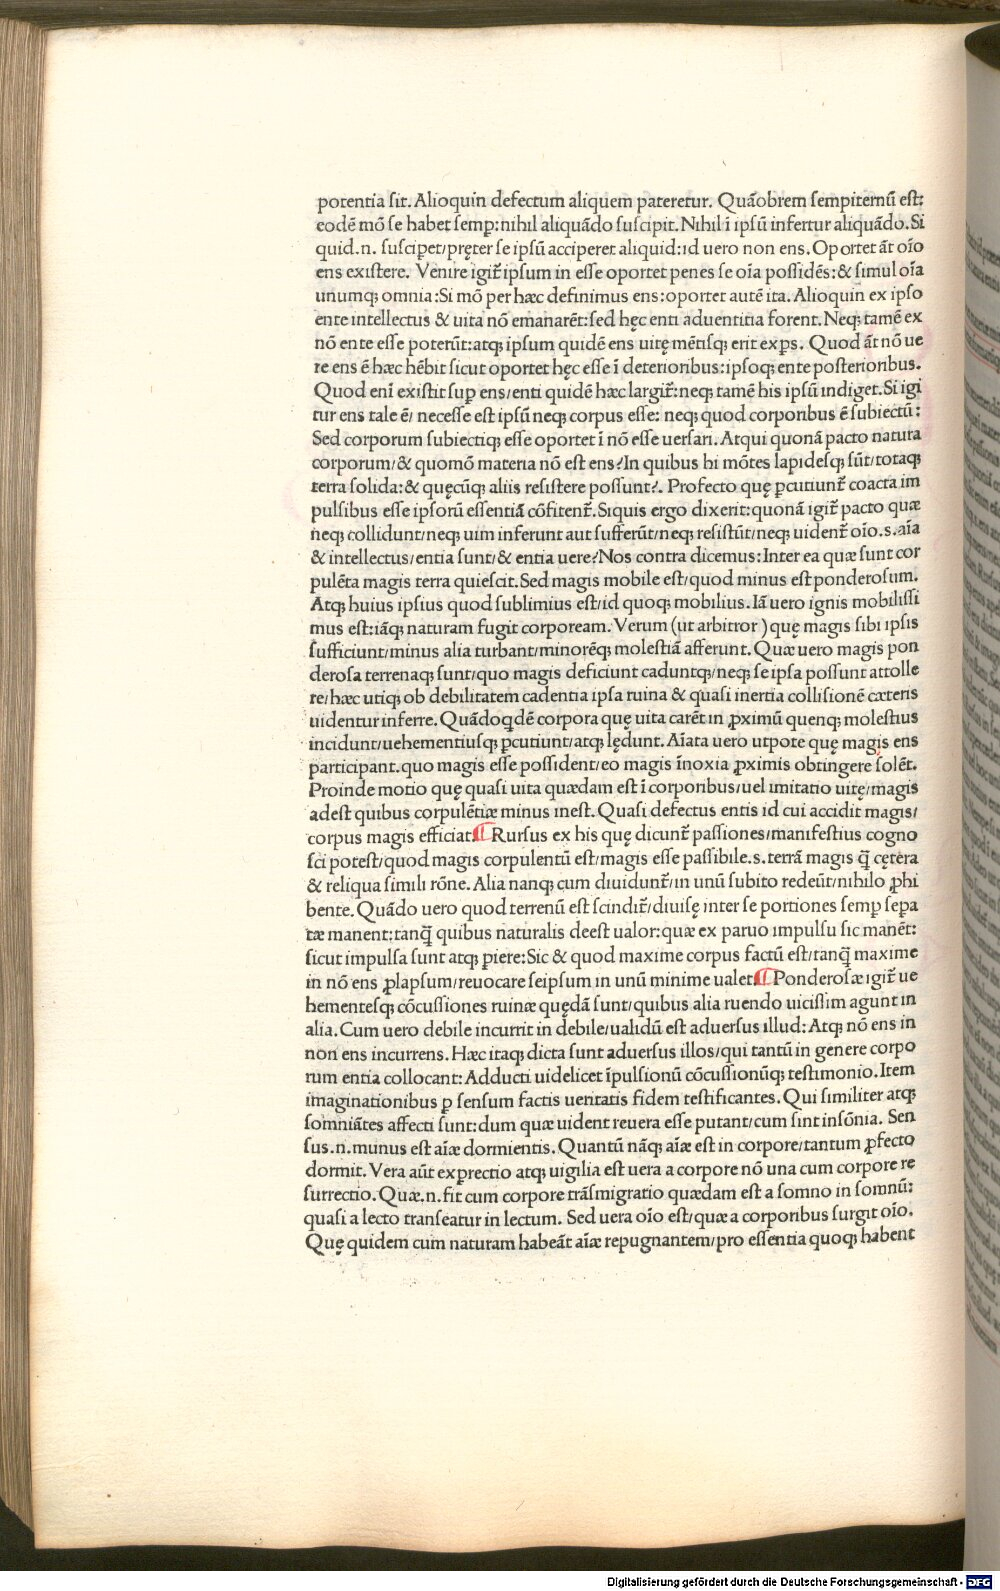 potentia sit. Alioquin defectum aliquem pateretur. Quãobrem sempiternũ est:
eodẽ mõ se habet semp̱:nihil aliquãdo suscipit. Nihil ĩ ipsũ infertur aliquãdo. Si
quid.n. suscipet/pręter se ipsũ acciperet aliquid:id uero non ens. Oportet ãt oĩo
ens existere. Venire igit̃ ipsum in esse oportet penes se oĩa possidẽs:& simul oĩa
unumqꝫ omnia:Si mõ per hæc definimus ens:oportet autẽ ita. Alioquin ex ipso
ente intellectus & uita nõ emanarẽt:sed hęc enti aduentitia forent. Neqꝫ tamẽ ex
nõ ente esse poterũt:atqꝫ ipsum quidẽ ens uitę mẽtisqꝫ erit exꝑs. Quod ãt nõ ue
re ens ẽ hæc hẽbit sicut oportet hęc esse ĩ deterioribus:ipsoqꝫ ente posterioribus.
Quod enĩ existit suꝑ ens/enti quidẽ hæc largit̃:neqꝫ tamẽ his ipsũ indiget. Si igi
tur ens tale ẽ/ necesse est ipsũ neqꝫ corpus esse: neqꝫ quod corporibus ẽ subiectũ:
Sed corporum subiectiqꝫ esse oportet ĩ nõ esse uersari. Atqui quonã pacto natura
corporum/& quomõ materia nõ est ens?In quibus hi mõtes lapidesqꝫ sũt/totaqꝫ
terra solida:& quęcũqꝫ aliis resistere possunt?. Profecto quę ꝑcutiunt̃ coacta im
pulsibus esse ipsorũ essentiã cõfitent̃. Siquis ergo dixerit:quonã igit̃ pacto quæ
neqꝫ collidunt/neqꝫ uim inferunt aut sufferũt/neqꝫ resistũt/neqꝫ uident̃ oĩo.s.aĩa
& intellectus/entia sunt/& entia uere?Nos contra dicemus:Inter ea quæ sunt cor
pulẽta magis terra quiescit. Sed magis mobile est/quod minus est ponderosum.
Atqꝫ huius ipsius quod sublimius est/id quoqꝫ mobilius. Iã uero ignis mobilissi
mus est:iãqꝫ naturam fugit corpoream. Verum (ut arbitror) quę magis sibi ipsis
sufficiunt/minus alia turbant/minorẽqꝫ molestiã afferunt. Quæ uero magis pon
derosa terrenaqꝫ sunt/quo magis deficiunt caduntqꝫ/neqꝫ se ipsa possunt attolle
re/hæc utiqꝫ ob debilitatem cadentia ipsa ruina & quasi inertia collisionẽ cæteris
uidentur inferre. Quãdoqdẽ corpora quę uita carẽt in ꝓximũ quenqꝫ molestius
incidunt/uehementiusqꝫ ꝑcutiunt/atqꝫ lędunt. Aĩata uero utpote quę magis ens
participant.quo magis esse possident/eo magis ĩnoxia ꝓximis obtingere solẽt.
Proinde motio quę quasi uita quædam est ĩ corporibus/uel imitatio uitę/magis
adest quibus corpulẽtiæ minus inest. Quasi defectus entis id cui accidit magis/
corpus magis efficiat. ¶ Rursus ex his quę dicunt̃ passiones/manifestius cogno
sci potest/quod magis corpulentũ est/magis esse passibile.s.terrã magis q̃ cętera
& reliqua simili rõne. Alia nanqꝫ cum diuidunt̃/in unũ subito redeũt/nihilo ꝓhi
bente. Quãdo uero quod terrenũ est scindit̃/diuisę inter se portiones semꝑ sepa
tæ manent:tanq̃ quibus naturalis deest ualor:quæ ex paruo impulsu sic manẽt:
sicut impulsa sunt atqꝫ ꝑiere:Sic & quod maxime corpus factũ est/tanq̃ maxime
in nõ ens ꝓlapsum/reuocare seipsum in unũ minime ualet. ¶ Ponderosæ igit̃ ue
hementesqꝫ cõcussiones ruinæ quędã sunt/quibus alia ruendo uicissim agunt in
alia. Cum uero debile incurrit in debile/ualidũ est aduersus illud: Atqꝫ nõ ens in
non ens incurrens. Hæc itaqꝫ dicta sunt aduersus illos/qui tantũ in genere corpo
rum entia collocant: Adducti uidelicet ĩpulsionũ cõcussionũqꝫ testimonio. Item
imaginationibus ꝑ sensum factis ueritatis fidem testificantes. Qui similiter atqꝫ
somniãtes affecti sunt:dum quæ uident reuera esse putant/cum sint insõnia. Sen
sus.n.munus est aĩæ dormientis. Quantũ nãqꝫ aĩæ est in corpore/tantum ꝓfecto
dormit. Vera aũt exꝑrectio atqꝫ uigilia est uera a corpore nõ una cum corpore re
surrectio. Quæ.n.fit cum corpore trãsmigratio quædam est a somno in somnũ:
quasi a lecto transeatur in lectum. Sed uera oĩo est/quæ a corporibus surgit oĩo.
Quę quidem cum naturam habeãt aĩæ repugnantem/pro essentia quoqꝫ habent
Digitalisierung gefördert durch die Deutsche Forschungsgemeinschaft - DFG